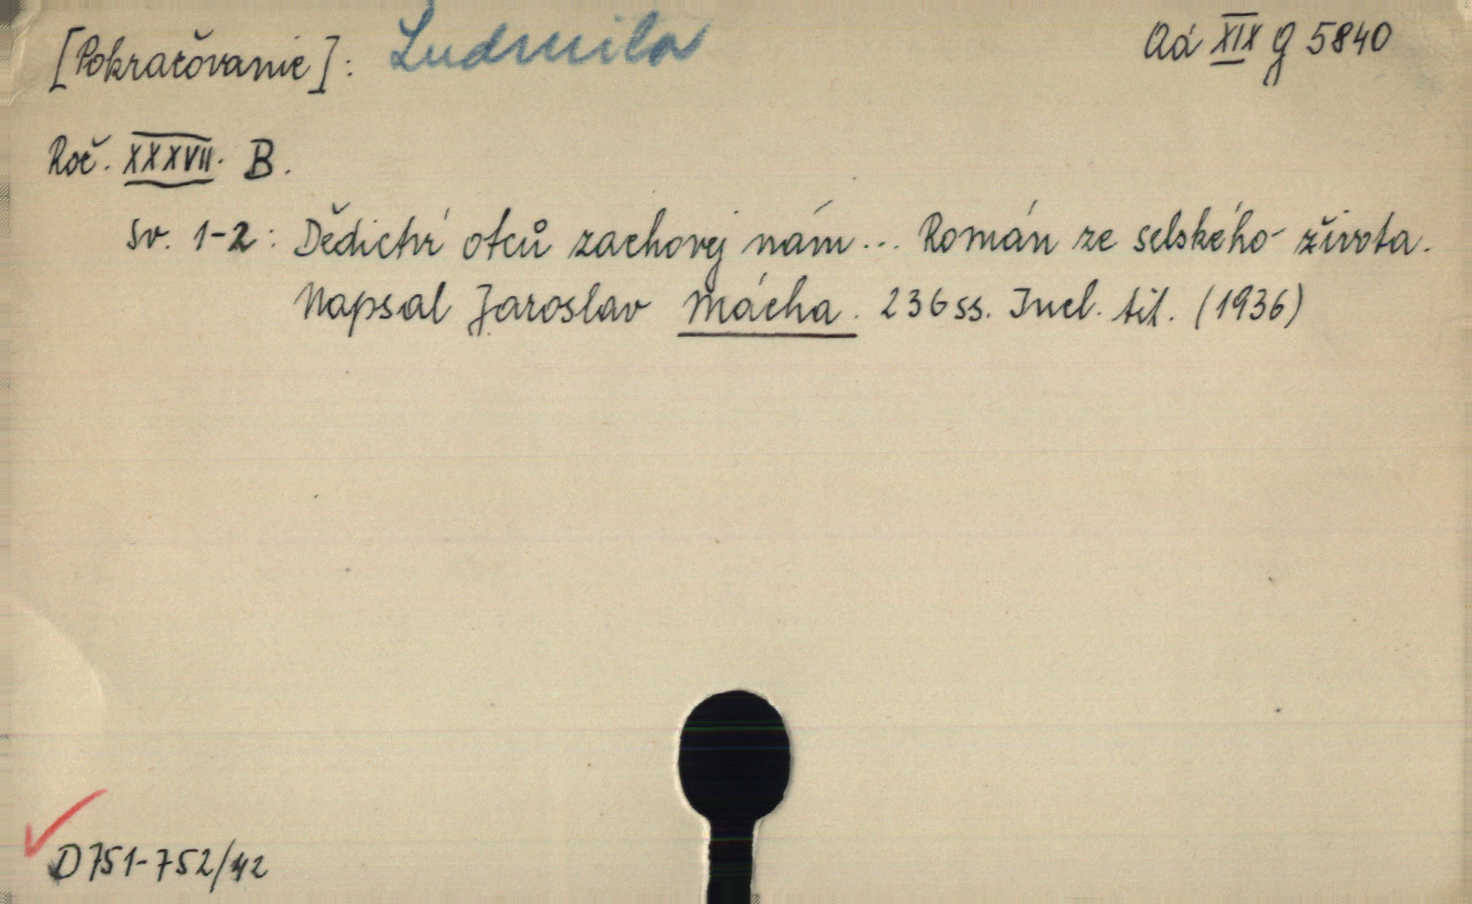 [Pokračovanie]: Ludmila Ad XIX g 5840
Roč. XXXVII. B.
sv. 1-2: Dědictví otců zachovej nám... Román ze selského života.
Napsal Jaroslav Mácha. 236 ss. Incl. tit. (1936)
D 751-752/42